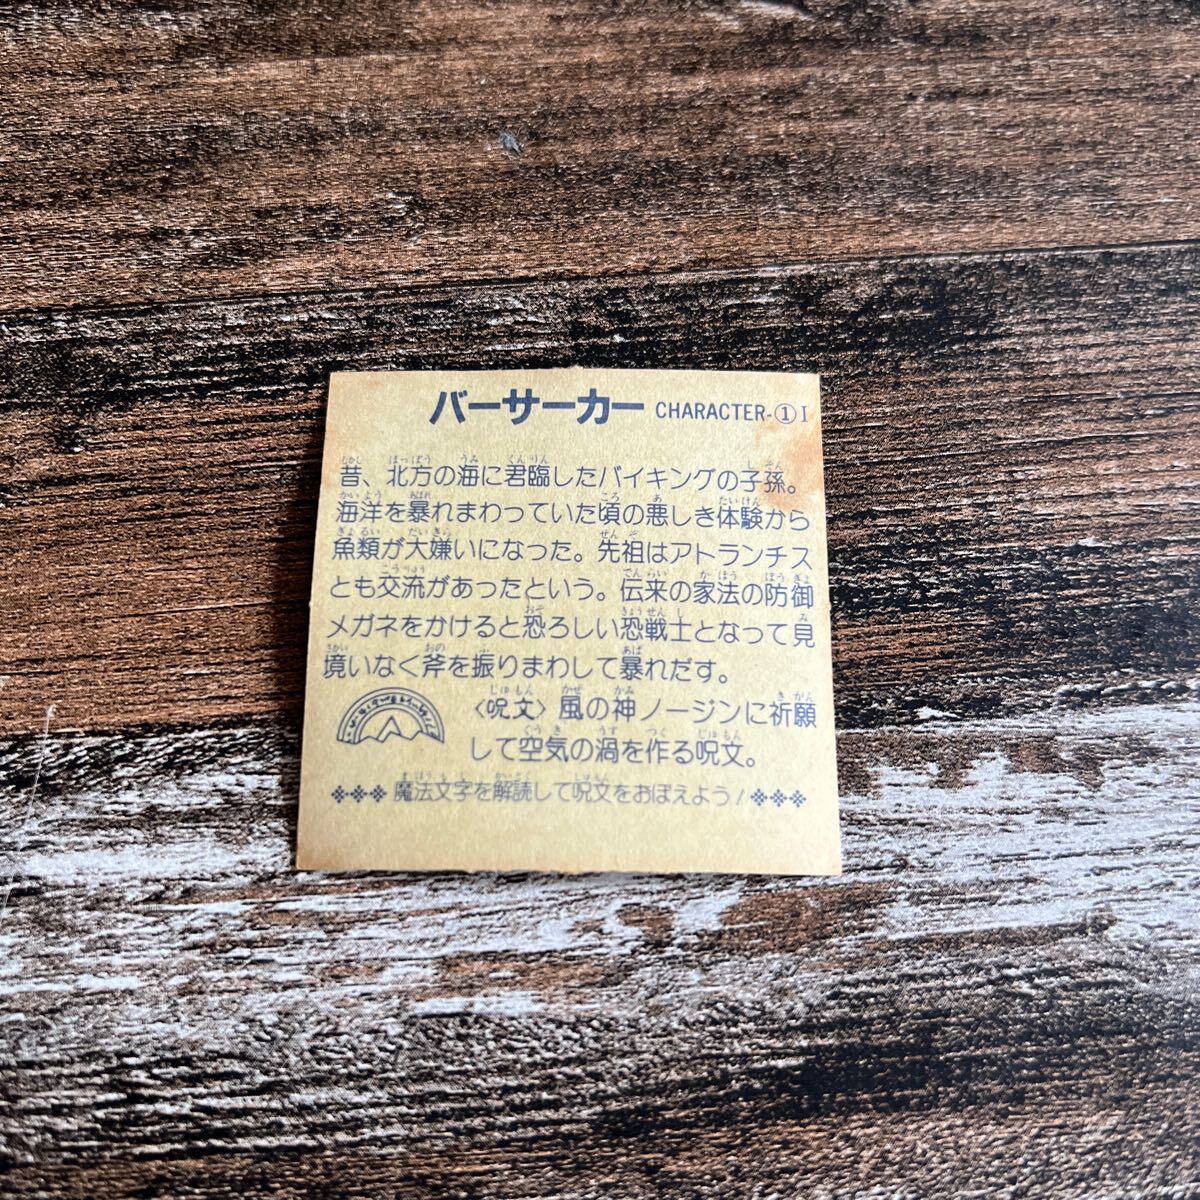 バーサーカー CHARACTER-①I
昔、北方の海に君臨したバイキングの子孫。
海洋を暴れまわっていた頃の悪しき体験から
魚類が大嫌いになった。先祖はアトランチス
とも交流があったという。伝来の家法の防御
メガネをかけると恐ろしい恐戦士となって見
境いなく斧を振りまわして暴れだす。
〈呪文〉風の神ノージンに祈願
して空気の渦を作る呪文。
魔法文字を解読して呪文をおぼえよう!